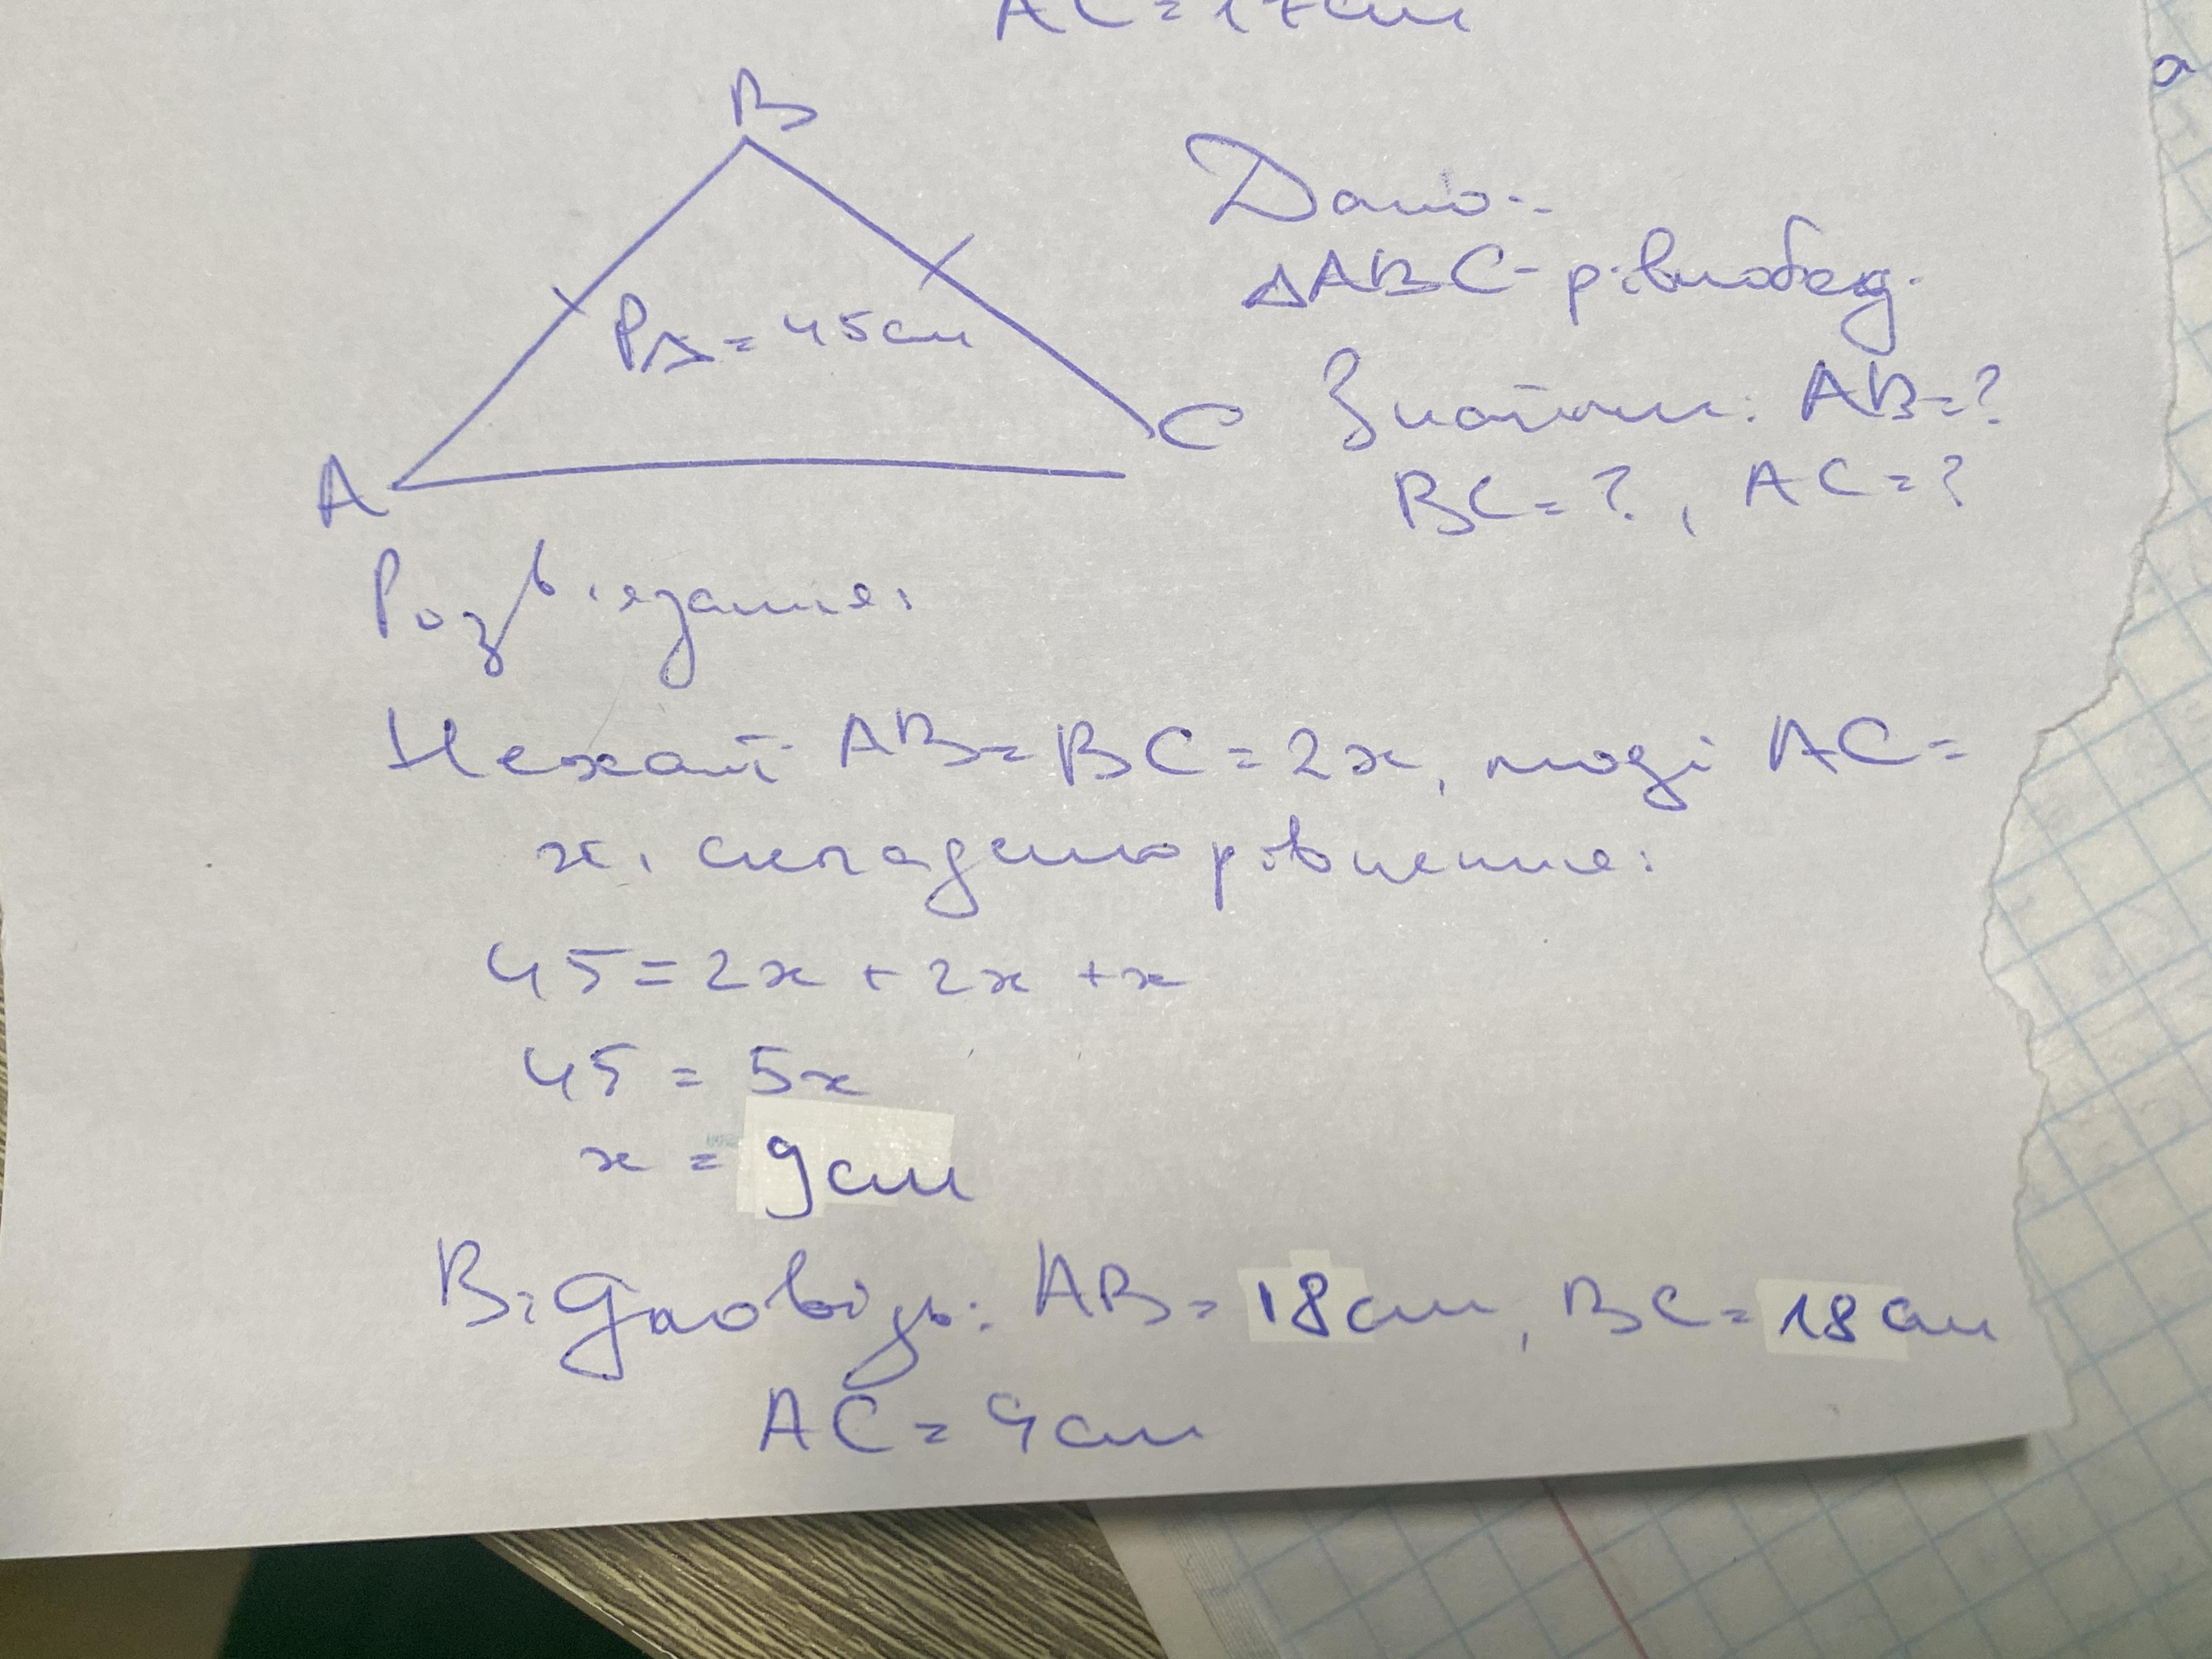 AC = 17см
B
Дано:
△ABC - рівнобед.
P△ = 45см
Знайти: AB = ?
C
BC = ?, AC = ?
A
Розв'язання:
Нехай AB = BC = 2x, тоді AC =
x, складемо рівняння:
45 = 2x + 2x + x
45 = 5x
x = 9см
Відповідь: AB = 18см, BC = 18см
AC = 9см